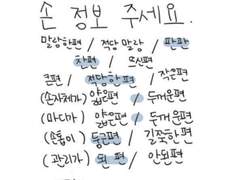 손 정보 주세요.
말랑한편 / 적당 말랑 / 딴딴
찬편 / 뜨신편
큰편 / 적당한편 / 작은편
(손자체가) 얇은편 / 두꺼운편
(마디가) 얇은편 / 두꺼운편
(손톱이) 둥근편 / 길쭉한편
(관리가) 된 편 / 안된편